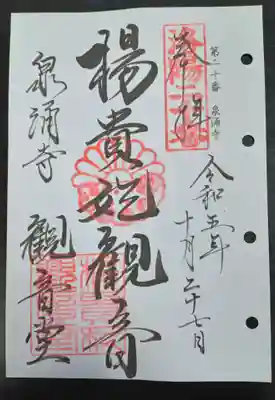 第二十番 泉涌寺
奉拝
令和五年
十月二十七日
楊貴妃觀音
泉涌寺 觀音堂